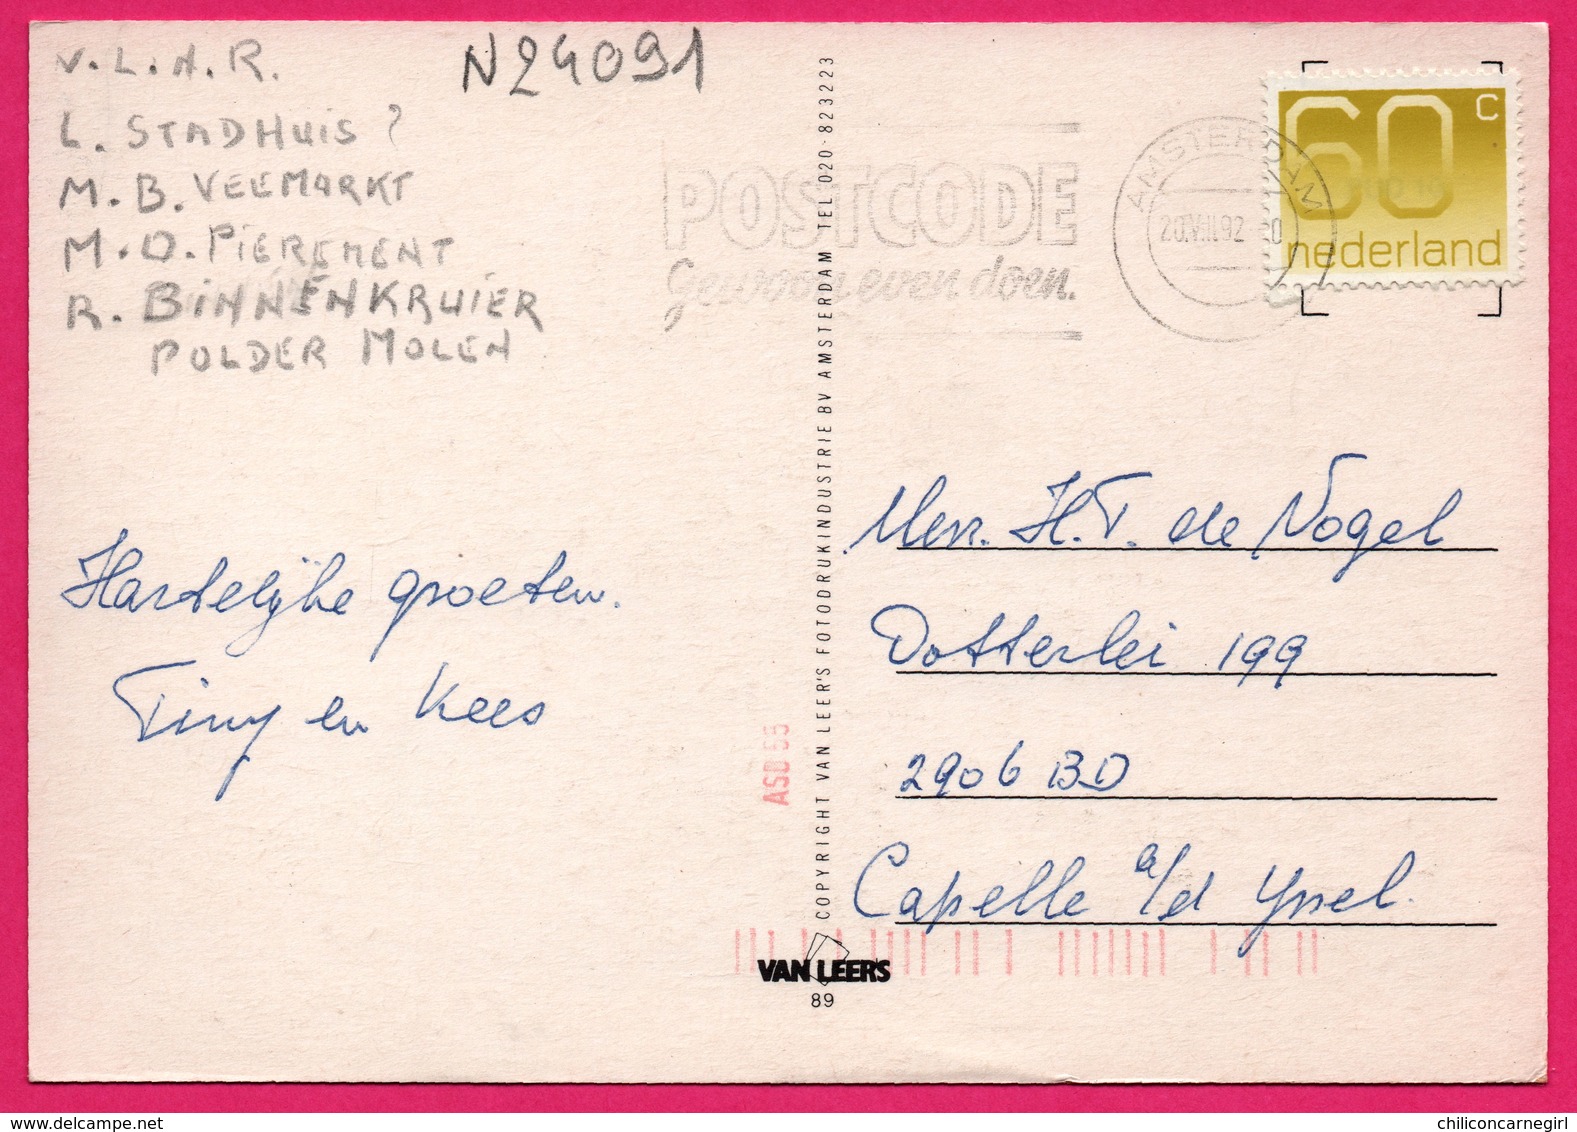 V.L.N.R.
L. STADHUIS?
M.B. VEEMARKT
M.O. PIEREMENT
R. BINNENKRUIER
POLDER MOLEN
N24091
POSTCODE
Gewoon even doen.
AMSTERDAM
20.VII.92
60 c
nederland
Hartelijke groeten.
Tiny en Kees
COPYRIGHT VAN LEER'S FOTODRUKINDUSTRIE BV AMSTERDAM TEL 020-823223
Mevr. H.T. de Nogel
Dotterlei 199
2906 BD
Capelle a/d Yssel.
VAN LEER'S
89
chiliconcarnegirl / delcampe.net